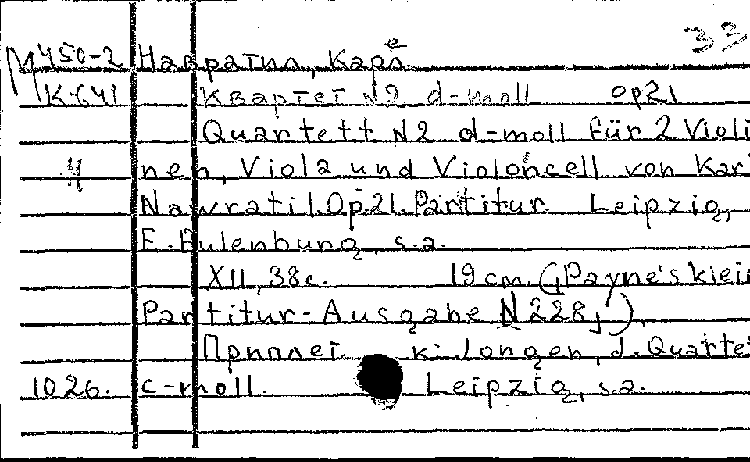 33
М450-2 Навратил, Карл
К-641 Квартет N2 d-moll op21
Quartett N2 d-moll für 2 Violi
4 nen, Viola und Violoncell von Kar
Nawratil. Op. 21. Partitur Leipzig,
E. Eulenburg, s.a.
XII, 38 с. 19 cm. (Payne's klein
Partitur-Ausgabe N 228,)
Приплет к: Jongen, J. Quartet
1026. c-moll. Leipzig, s.a.